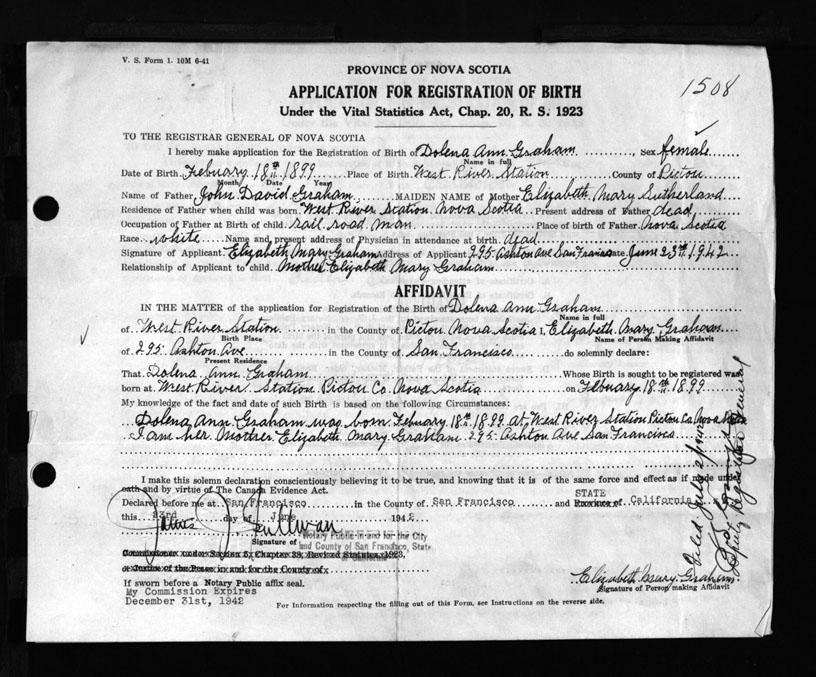 V. S. Form 1. 10M 6-41
PROVINCE OF NOVA SCOTIA
1508
APPLICATION FOR REGISTRATION OF BIRTH
Under the Vital Statistics Act, Chap. 20, R. S. 1923
TO THE REGISTRAR GENERAL OF NOVA SCOTIA
I hereby make application for the Registration of Birth of Dolena Ann Graham, Sex female
Name in full
Date of Birth Febuary 18th 1899 Place of Birth West River Station County of Pictou
Month Date Year
Name of Father John David Graham MAIDEN NAME of Mother Elizabeth Mary Sutherland
Residence of Father when child was born West River Station Nova Scotia Present address of Father dead
Occupation of Father at Birth of child rail road man Place of birth of Father Nova Scotia
Race white Name and present address of Physician in attendance at birth dead
Signature of Applicant Elizabeth Mary Graham Address of Applicant 295 Ashton Ave San Francisco Date June 23rd 1942
Relationship of Applicant to child Mother Elizabeth Mary Graham
AFFIDAVIT
IN THE MATTER of the application for Registration of the Birth of Dolena Ann Graham
Name in full
of West River Station in the County of Pictou Nova Scotia I, Elizabeth Mary Graham
Birth Place Name of Person Making Affidavit
of 295 Ashton Ave in the County of San Francisco do solemnly declare:
Present Residence
That Dolena Ann Graham Whose Birth is sought to be registered was
born at West River Station Pictou Co Nova Scotia on Febuary 18th 1899
My knowledge of the fact and date of such Birth is based on the following Circumstances:
Dolena Ann Graham was born Febuary 18th 1899 at West River Station Pictou Co Nova Scotia
I am her Mother Elizabeth Mary Graham 295 Ashton Ave San Francisco
I make this solemn declaration conscientiously believing it to be true, and knowing that it is of the same force and effect as if made under
oath and by virtue of The Canada Evidence Act.
STATE
Declared before me at San Francisco in the County of San Francisco and Province of California
this 23rd day of June 1942
Signature of Notary Public in and for the City
and County of San Francisco, State
of California
Commissioner under Section 5, Chapter 38, Revised Statutes 1923,
or Justice of the Peace in and for the County of
If sworn before a Notary Public affix seal.
My Commission Expires
December 31st, 1942
Elizabeth Mary Graham
Signature of Person making Affidavit
For Information respecting the filling out of this Form, see Instructions on the reverse side.
Deputy Registrar General